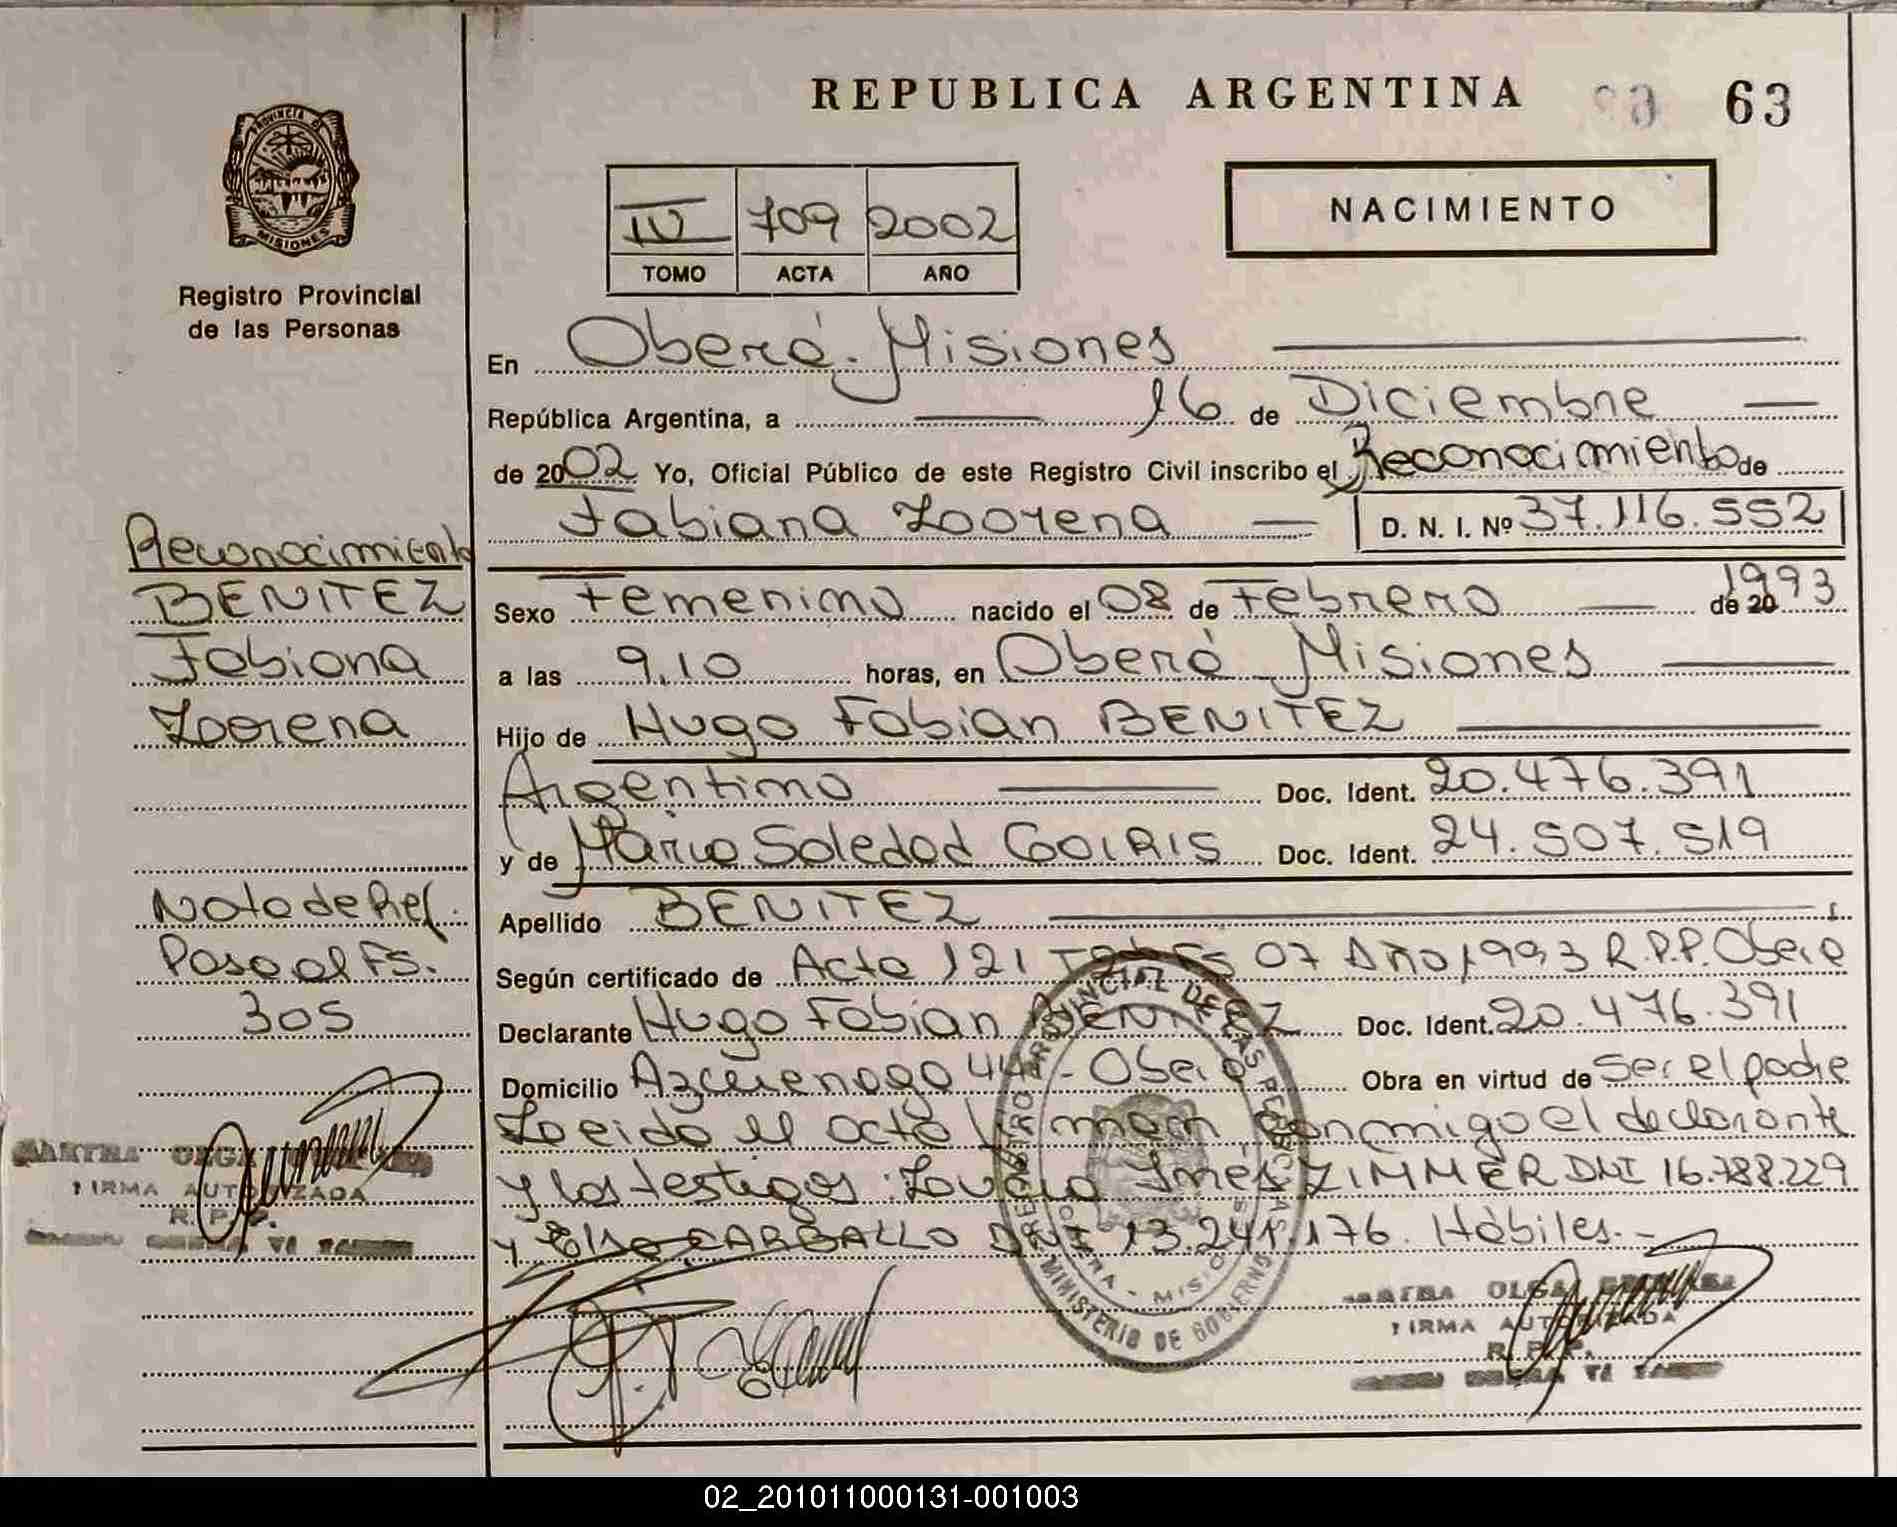 REPUBLICA ARGENTINA 63
PROVINCIA DE
MISIONES
Registro Provincial
de las Personas
IV 709 2002
TOMO ACTA AÑO
NACIMIENTO
En Oberá. Misiones
República Argentina, a 16 de Diciembre
de 2002 Yo, Oficial Público de este Registro Civil inscribo el Reconocimiento de
Fabiana Lorena D. N. I. Nº 37.116.552
Sexo Femenino nacido el 08 de Febrero de 20 1993
a las 9,10 horas, en Oberá Misiones
Hijo de Hugo Fabian BENITEZ
Argentino Doc. Ident. 20.476.391
y de Maria Soledad GOIRIS Doc. Ident. 24.507.519
Apellido BENITEZ
Según certificado de Acta 121 Fs 07 Año 1993 R.P.P. Oberá
Declarante Hugo Fabian BENITEZ Doc. Ident. 20.476.391
Domicilio Azcuenaga - Oberá Obra en virtud de ser el padre
Leida el acta firman conmigo el declarante
y los testigos: Inés ZIMMER DNI 16.788.229
y CARBALLO DNI 13.241.176. Hábiles.-
Reconocimiento
BENITEZ
Fabiana
Lorena
Nota de Ref.
Pasa al Fs.
305
OLGA
FIRMA AUTORIZADA
R. P. P.
REGISTRO PROVINCIAL DE LAS PERSONAS
MINISTERIO DE GOBIERNO
OLGA
FIRMA AUTORIZADA
R. P. P.
02_201011000131-001003